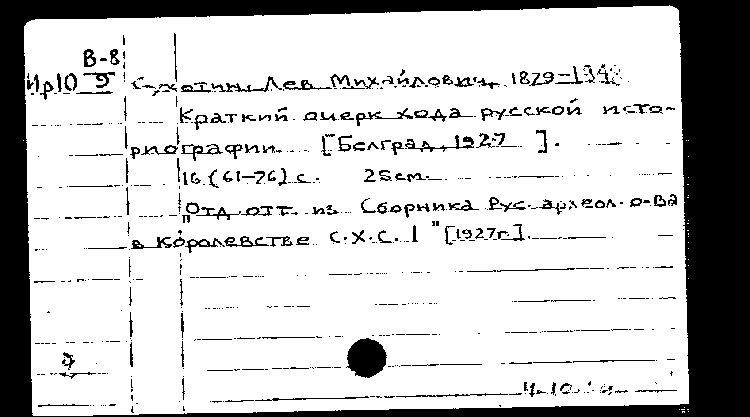 В-8
Ир10 9 Сухотин, Лев Михайлович, 1879-1948
Краткий очерк хода русской исто-
риографии [Белград, 1927 ].
16 (61-76) с. 25 см.
"Отд. отт. из Сборника Рус. археол. о-ва
в Королевстве С.Х.С. I" [1927г].